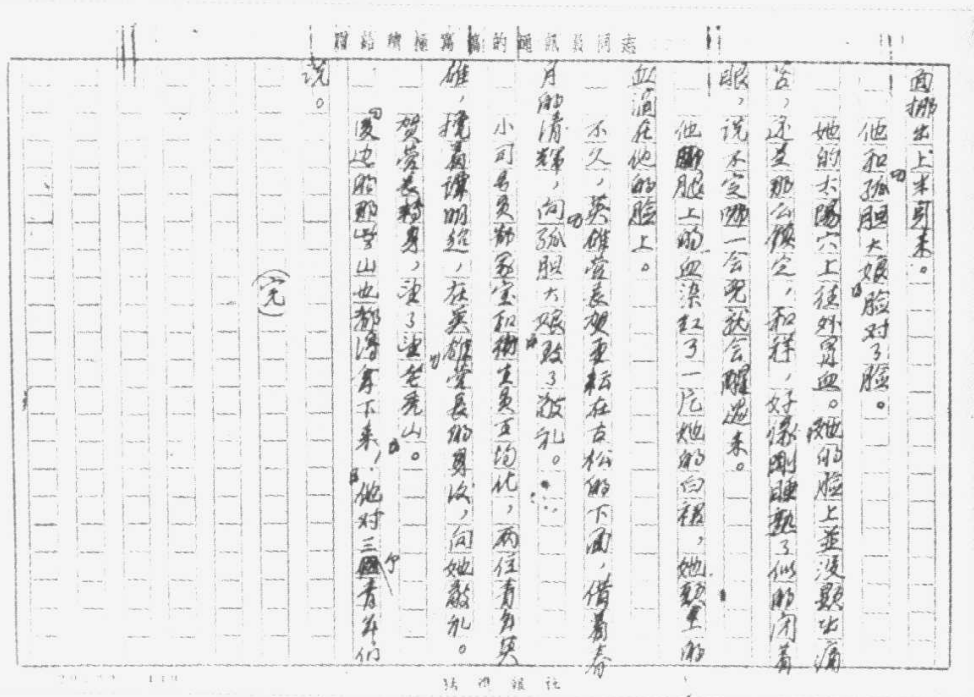 赠给积极写稿的通讯员同志
面挪出上半身来。
他和孤胆大娘脸对了脸。
她的太陽穴上往外冒血。她的脸上並没顯出痛
苦，还是那么镇定，和祥，好像剛睡熟了似的闭着
眼，说不定哪一会兒就会醒过来。
他腿上的血染红了一片她的白褂，她额上的
血滴在他的脸上。
不久，英雄营長贺亚松在古松的下面，借着春
月的清輝，向孤胆大娘致了敬礼。
小司号员郭家宝和衛生员王均化，两位青年英
雄，攙着譚明超，在英雄营長的身後，向她敬礼。
贺营長轉身，望了望老秃山。
“後边的那些山也都得拿下来，”他对三个青年们
说。
（完）
報社